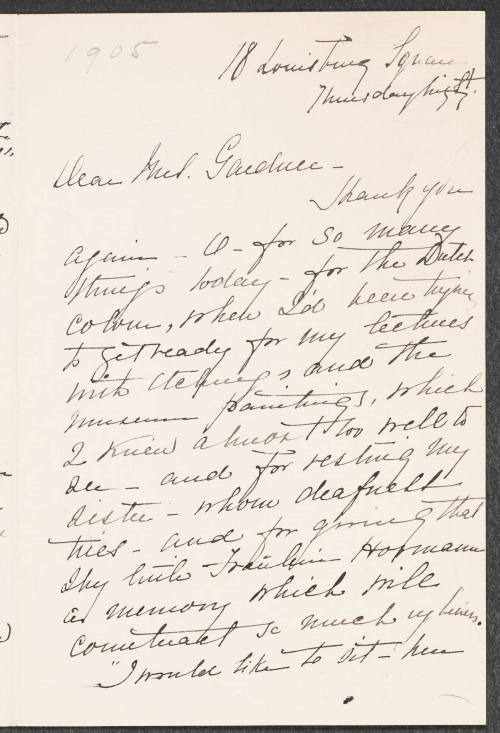 1905
18 Louisburg Square
Thursday night.
Dear Mrs. Gardner -
Thank you
again - O - for so many
things today - for the Dutch
colour, when I'd been trying
to get ready for my lectures
with etchings and the
museum paintings, which
I knew almost too well to
see - and for resting my
sister - whom deafness
tries - and for giving that
shy little Fräulein Hormann
a memory which will
counteract so much ugliness.
"I would like to sit - here